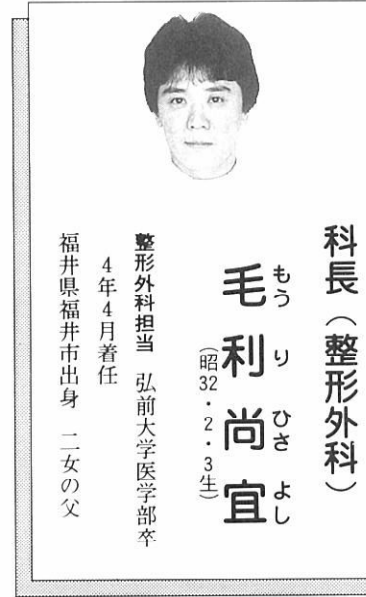 科長（整形外科）
もうり ひさよし
毛利尚宜
（昭32・2・3生）
整形外科担当 弘前大学医学部卒
4年4月着任
福井県福井市出身 二女の父